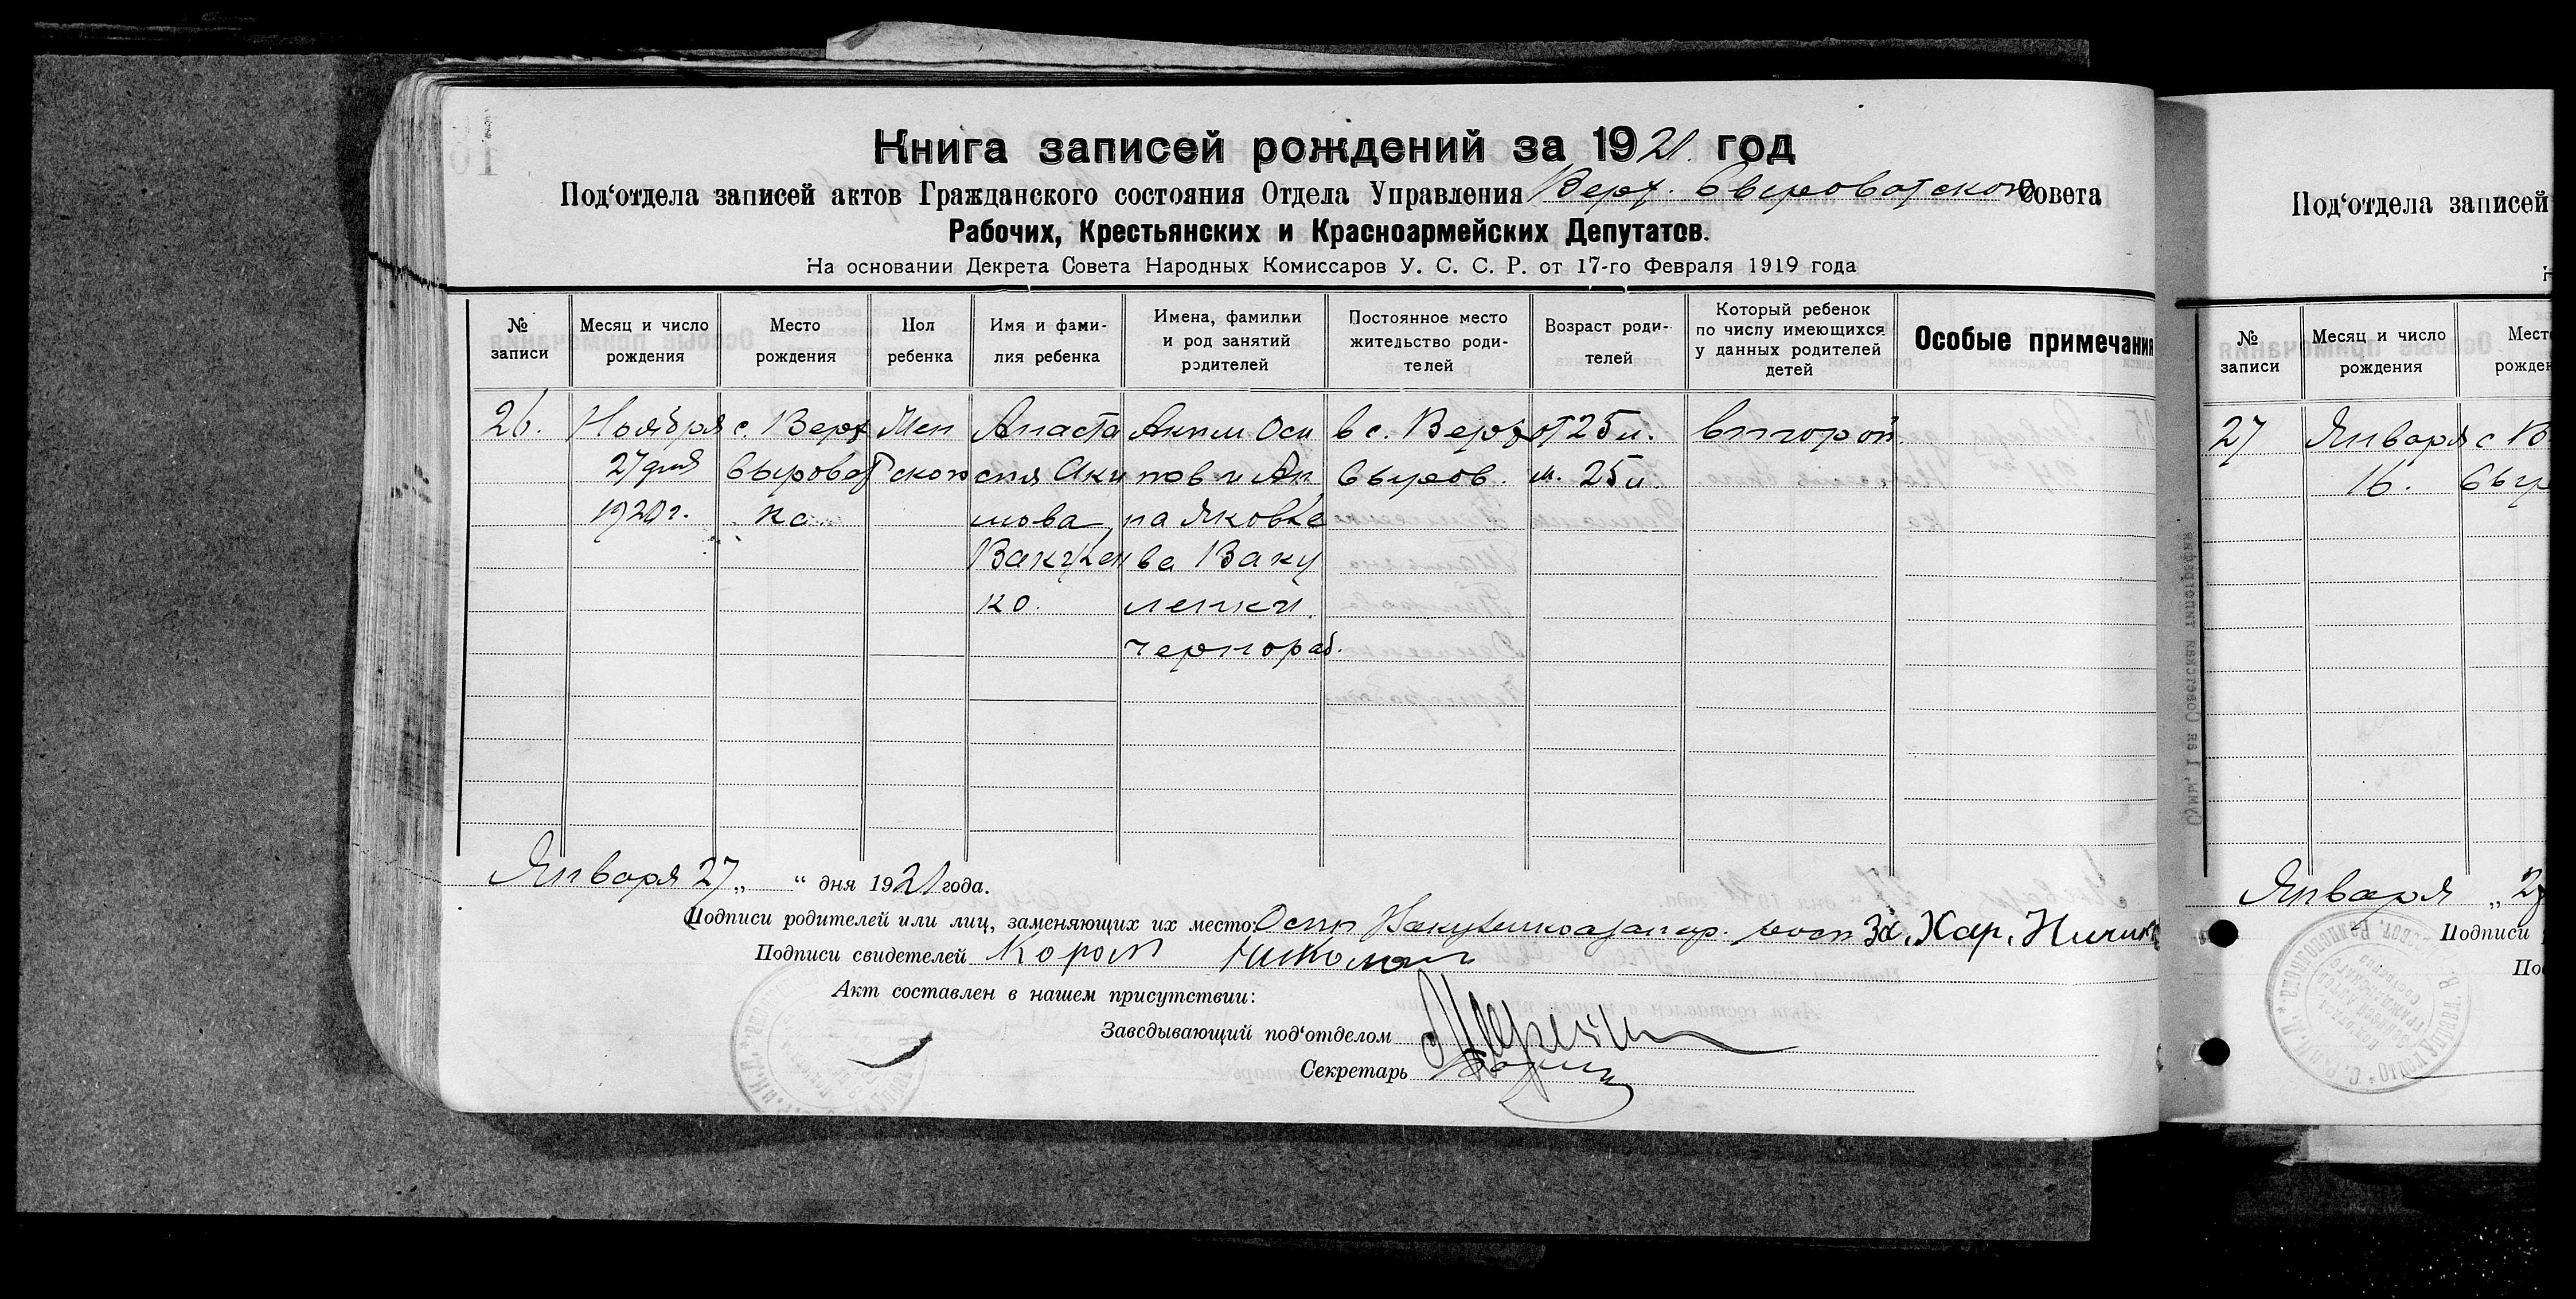 Книга записей рождений за 1921 год
Под‘отдела записей актов Гражданского состояния Отдела Управления Верх. Сыроватского Совета
Рабочих, Крестьянских и Красноармейских Депутатов.
На основании Декрета Совета Народных Комиссаров У. С. С. Р. от 17-го Февраля 1919 года
№ записи
Месяц и число рождения
Место рождения
Пол ребенка
Имя и фами-
лия ребенка
Имена, фамилии
и род занятий
родителей
Постоянное место
жительство роди-
телей
Возраст роди-
телей
Который ребенок
по числу имеющихся
у данных родителей
детей
Особые примечания
26.
Ноября
27 дня
1920 г.
с. Верх
Сыроват
ка
Жен
ского
Анаста
сия Аки
мова
Вакулен
ко.
Аким Оси
пов и Ан
на Яковле
ва Ваку
ленки
чернораб.
в с. Верх
Сыров.
от 25 л.
м. 25 л.
второй
Января 27 „ “ дня 1921 года.
Подписи родителей или лиц, заменяющих их место: Осип Вакуленко
Подписи свидетелей Короп Николай
Акт составлен в нашем присутствии:
Заведывающий под‘отделом
Секретарь
Под‘отдела записей
№ записи
Месяц и число
рождения
Мест
рожден
27
Января
16.
с В
Сыр
Января „ 27
Подписи
По
Сумы, 1-ая Советская типография